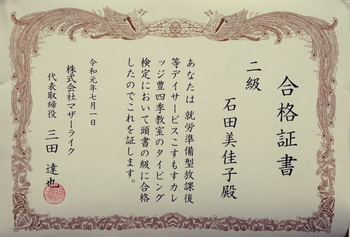 合格証書
二級
石田美佳子殿
あなたは 就労準備型放課後
等デイサービスこすもすカレ
ッジ豊四季教室のタイピング
検定において頭書の級に合格
したのでこれを証します。
令和元年七月一日
株式会社マザーライク
代表取締役 三田 達也